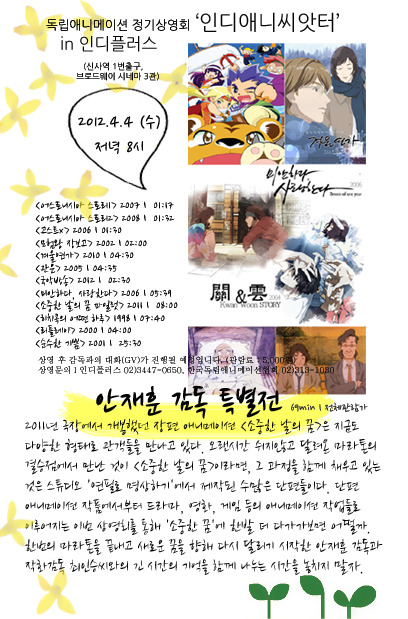 독립애니메이션 정기상영회 ‘인디애니씨앗터’
in 인디플러스
(신사역 1번출구,
브로드웨이 시네마 3관)
2012.4.4 (수)
저녁 8시
겨울연가
미안하다
사랑한다
2006
關&雲
2004
Kwan Woon STORY
<어스토니시아 스토리1> 2007 I 01:17
<어스토니시아 스토리2> 2008 I 01:32
<고스트X> 2006 I 01:30
<모험왕 장보고> 2002 I 02:00
<겨울연가> 2010 I 04:30
<관운> 2005 I 04:35
2012 I 02:30
<미안하다, 사랑한다> 2006 I 05:39
<소중한 날의 꿈 파일럿> 2011 I 08:00
<히치콕의 어떤 하루> 1998 I 07:40
<리플레이> 2000 I 04:00
<순수한 기쁨> 2001 I 25:30
상영 후 감독과의 대화(GV)가 진행될 예정입니다. (관람료 : 5,000원)
상영문의 I 인디플러스 02)3447-0650, 한국독립애니메이션협회 02)313-1030
안재훈 감독 특별전
69min I 전체관람가
2011년 극장에서 개봉했던 장편 애니메이션 <소중한 날의 꿈>은 지금도
다양한 형태로 관객들을 만나고 있다. 오랜시간 쉬지않고 달려온 마라톤의
결승점에서 만난 것이 <소중한 날의 꿈>이라면, 그 과정을 함께 채우고 있는
것은 스튜디오 '연필로 명상하기'에서 제작된 수많은 단편들이다. 단편
애니메이션 작품에서부터 드라마, 영화, 게임 등의 애니메이션 작업들로
이루어지는 이번 상영회를 통해 '소중한 꿈'에 한발 더 다가가보면 어떨까.
한번의 마라톤을 끝내고 새로운 꿈을 향해 다시 달리기 시작한 안재훈 감독과
작화감독 최인숙씨와의 긴 시간의 기억을 함께 나누는 시간을 놓치지 말자.